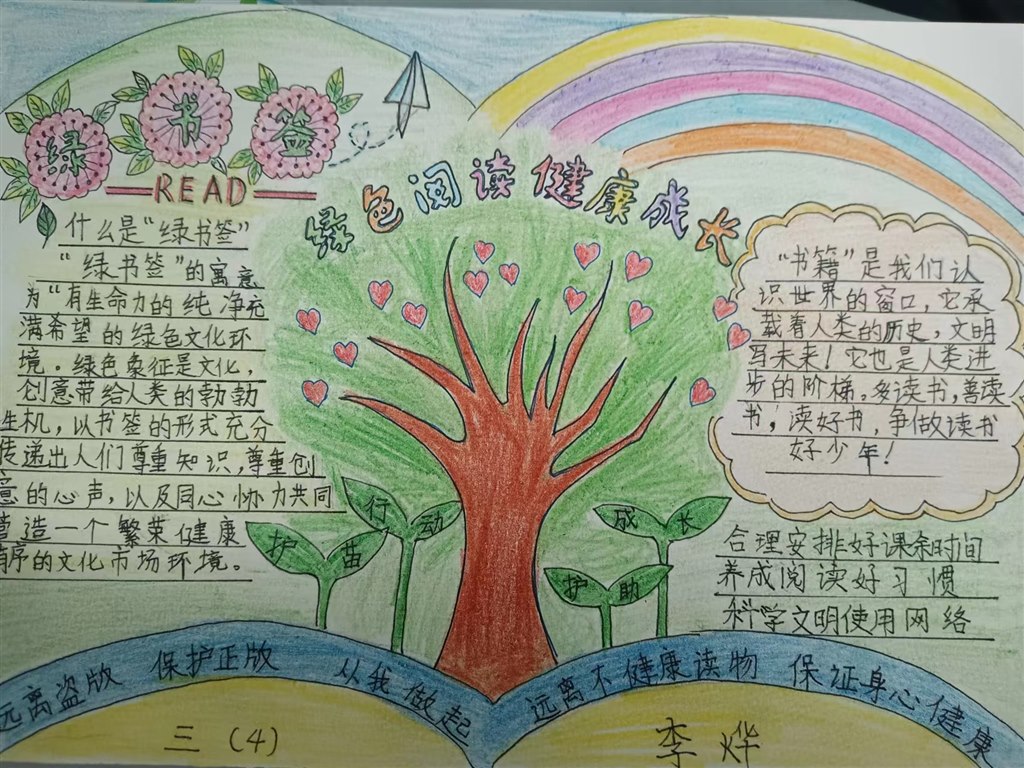 绿书签
READ
绿色阅读健康成长
什么是“绿书签”
“绿书签”的寓意
为“有生命力的纯净充
满希望的绿色文化环
境。绿色象征是文化，
创意带给人类的勃勃
生机，以书签的形式充分
传递出人们尊重知识，尊重创
意的心声，以及同心协力共同
营造一个繁荣健康
有序的文化市场环境。
“书籍”是我们认
识世界的窗口，它承
载着人类的历史，文明
写未来！它也是人类进
步的阶梯。多读书，善读
书，读好书，争做读书
好少年！
护苗
行动
护助
成长
合理安排好课余时间
养成阅读好习惯
科学文明使用网络
远离盗版 保护正版 从我做起
远离不健康读物 保证身心健康
三（4）
李烨